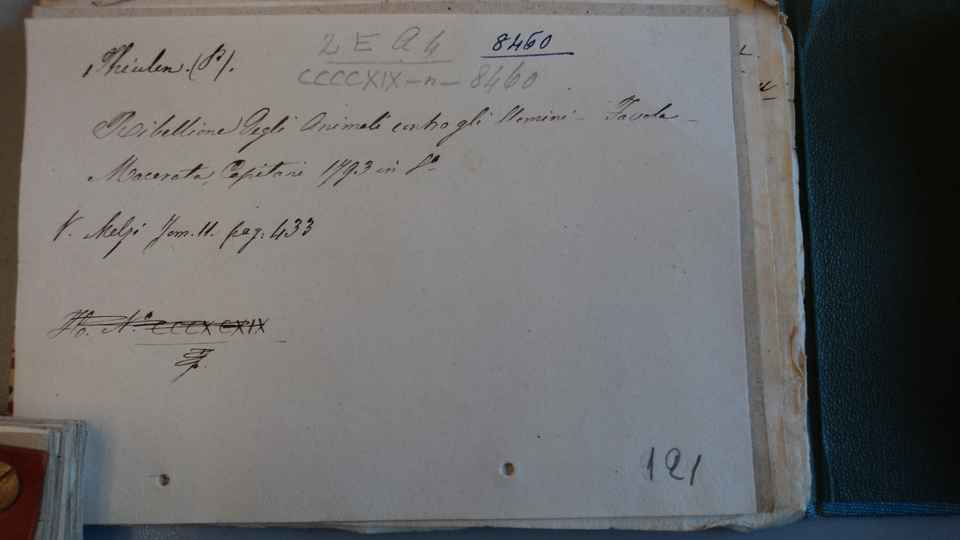 Theulen (P.).
2 E Q 4
8460
CCCCXIX-n-8460
Ribellione Degli Animali contro gli Uomini - Favola -
Macerata, Capitani 1793 in 8°
V. Melzi Tom. II. pag. 433
N.° CCCXCXIX
121